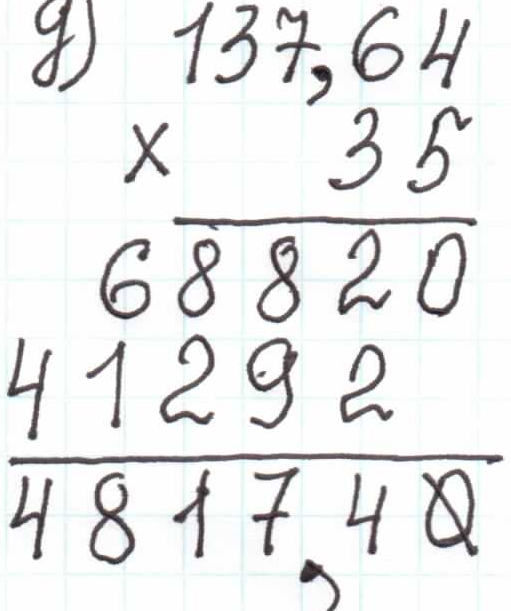 д) 137,64
× 35
68820
41292
4817,40